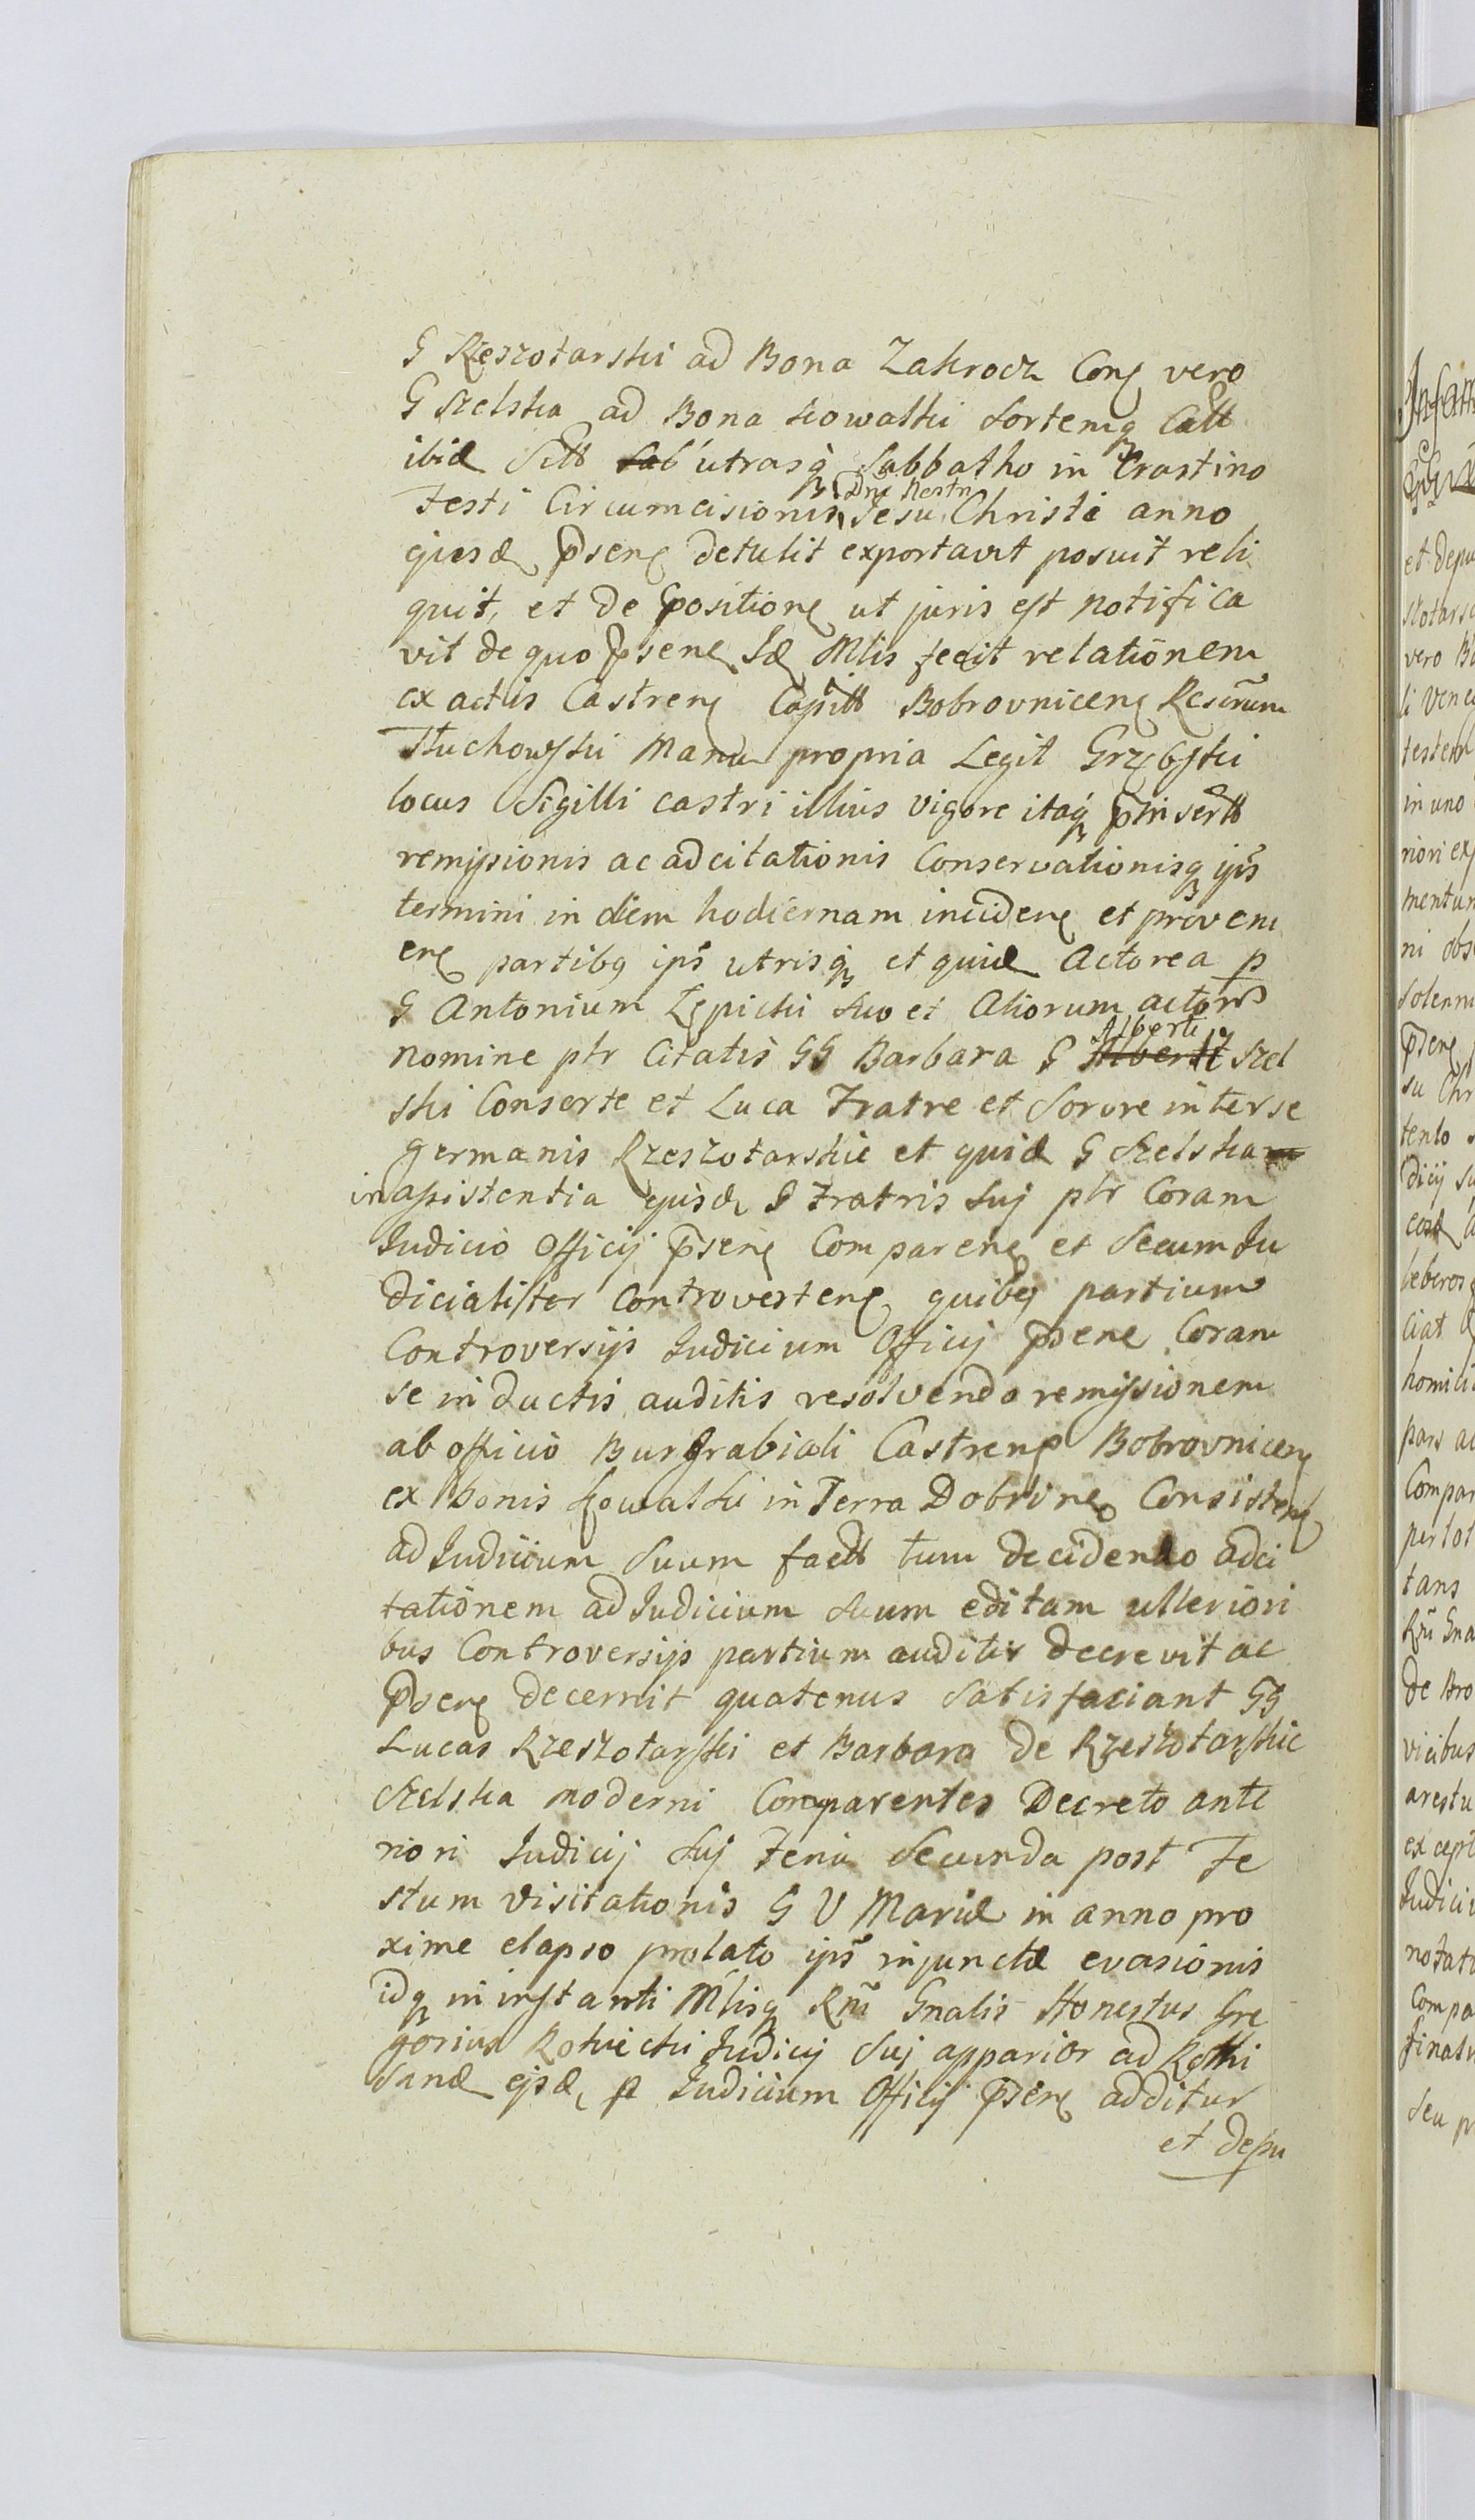 G Rzeszotarski ad Bona Zakrocz Conſ vero
G Szelska ad Bona Kowalki Sortemq Citt
ibid Sitt Sab utrasq Sabbatho in Crastino
Festi Circumcisionis Dni Nostri Jesu Christi anno
ejusd pſenſ detulit exportavit posuit reli
quit, et de positione ut juris est notifica
vit de quo pſenſ Id Mlis fecit relationem
ex actis Castrenſ Capitt Bobrovnicenſ Rescriptum
Tłuchowski Manu propria Legit Grzębski
locus Sigilli castri illius vigore itaq ptinsertt
remissionis ac adcitationis Conservationisq ips
termini in diem hodiernam inciden et proveni
en partibq ips utrisq et quid Actorea p
G Antonium Zępicki Suo et Aliorum actorr
nomine ptr Citatis GG Barbara G Alberti Szel
ski Consorte et Luca Fratre et Sorore inter se
germanis Rzeszotarskie et quid G Szelska
in assistentia ejusd G Fratris Suj ptr Coram
Judicio Officij pſenſ Comparenſ et Secum Ju
dicialiter Controvertenſ quibq partium
Controversijs Judicium Officij pſenſ Coram
se inductis auditis resolvendo remissionem
ab officio Burgrabiali Castrenſ Bobrovnicenſ
ex bonis Kowalki in Terra Dobrinenſ Consistenſ
ad Judicium Suum factt tum decidendo adci
tationem ad Judicium Suum editam ulteriori
bus Controversijs partium auditis decrevit ac
pſenſ decernit quatenus Satisfaciant GG
Lucas Rzeszotarski et Barbara de Rzeszotarskie
Szelska moderni Comparentes Decreto ante
riori Judicij Suj Feria Secunda post Fe
stum Visitationis G V Mariæ in anno pro
xime elapso prolato ips injunctæ evasionis
idq in instanti Mlisq Rni Gnalis Honestus Gre
gorius Rotwicki Judicij Suj apparior ad
Sand ejsd p Judicium Officij pſenſ additur
et depu